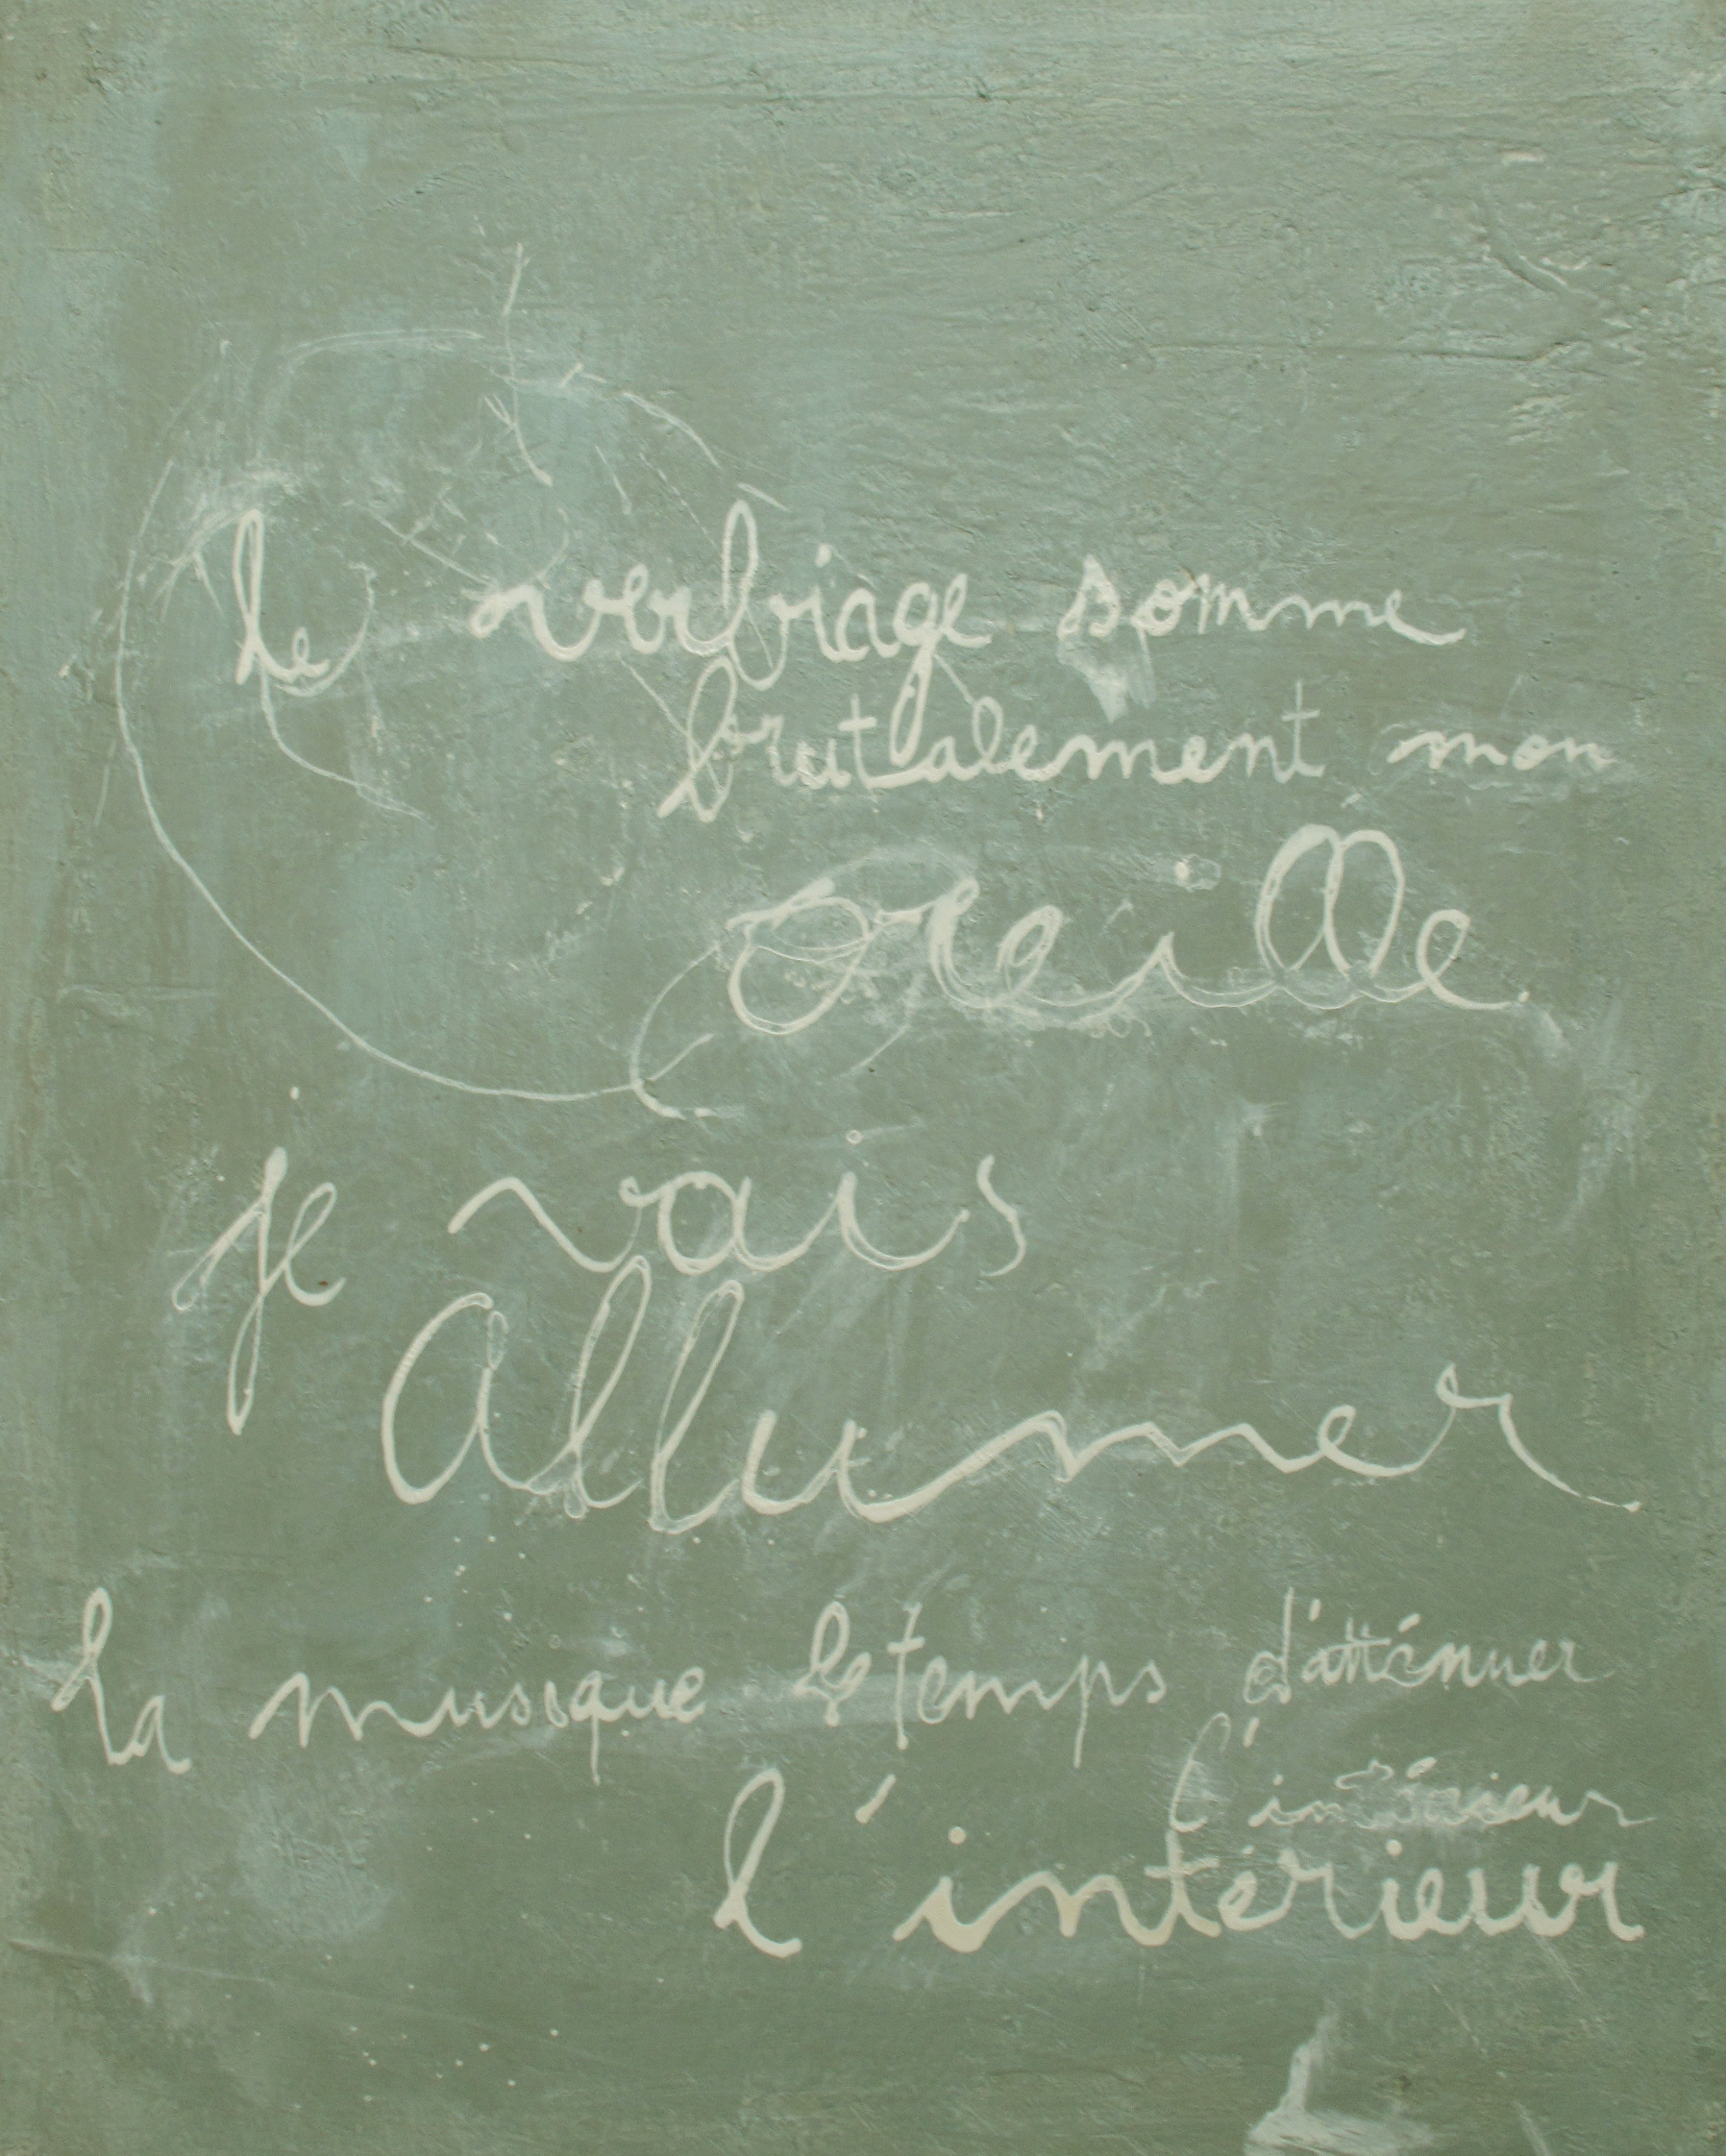 Le verbiage somme
brutalement mon
oreille.
je vais
Allumer
La musique le temps d'atténuer
l'intérieur
l'intérieur